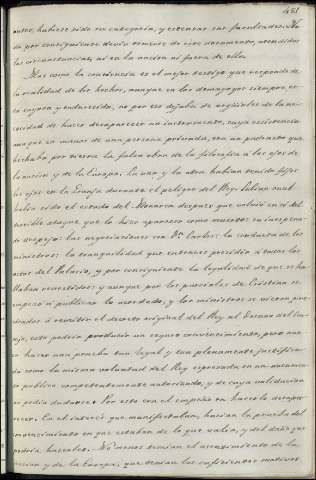 481
autor, hubiese sido su categoría, y cercenar sus facultades. Na-
da por consiguiente devia esperarse de ese documento, atendidas
las circunstancias, ni en la nacion ni fuera de ella.
Mas como la conciencia es el mejor testigo que responde de
la realidad de los hechos, aunque en los demagogos siempre, es-
ta cayera y enturecida, no por eso dejaba de argüirles de la ne-
cesidad de hacer desaparecer un instrumento, cuya existencia
aunque en manos de una persona privada, era un padrastro que
hechaba por tierra la falsa obra de la filosofia a los ojos de
la nacion y de la Europa. La una y la otra habian tenido fijos
los ojos en la Granja durante el peligro del Rey. Sabian cual
habia sido el estado del Monarca despues que volvió en sí del
terrible ataque que lo hizo aparecer como muerto: su inespera-
do despejo: las negociaciones con Dn. Carlos: la conducta de los
ministros: la tranquilidad que entonces presidió a todos los
actos del Palacio, y por consiguiente la legalidad de que se ha-
llaban revestidos: y aunque por los parciales de Cristina se
empezó a publicar lo acordado, y los ministros se vieron pre-
cisados á remitir el decreto original del Rey al Decano del Con-
sejo, esto podria producir un seguro convencimiento, pero nun-
ca hacer una prueba tan legal y tan plenamente justifica-
da como la misma voluntad del Rey espresada en un documen-
to publico competentemente autorizado, y de cuya validacion
no podia dudarse. Por esto con el empeño en hacerlo desapa-
recer. En el interes que manifestaban, hacian la prueba del
convencimiento en que estaban de lo que valia, y del daño que
podria hacerles. No menos temian el convencimiento de la
nacion y de la Europa, que tenian los suficientes motivos